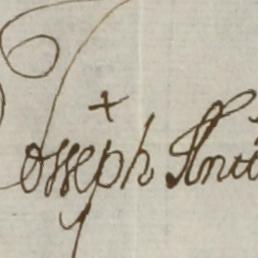 Josseph Anto